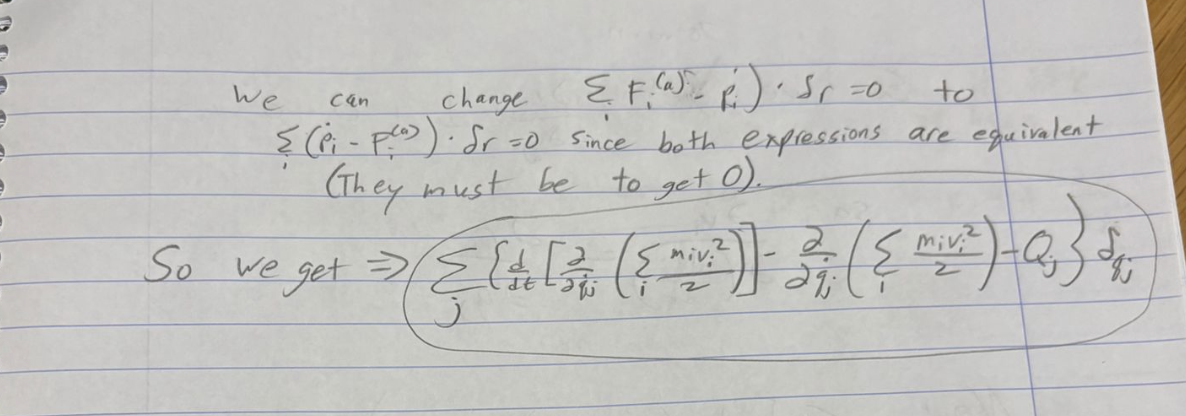 We can change Σ_i F_i^(a) - ṗ_i) · δr = 0 to
Σ_i (ṗ_i - F_i^(a)) · δr = 0 since both expressions are equivalent
(They must be to get 0).
So we get ⇒ Σ_j {d/dt [∂/∂q̇_j (Σ_i m_i v_i²/2)] - ∂/∂q_j (Σ_i m_i v_i²/2) - Q_j} δq_j